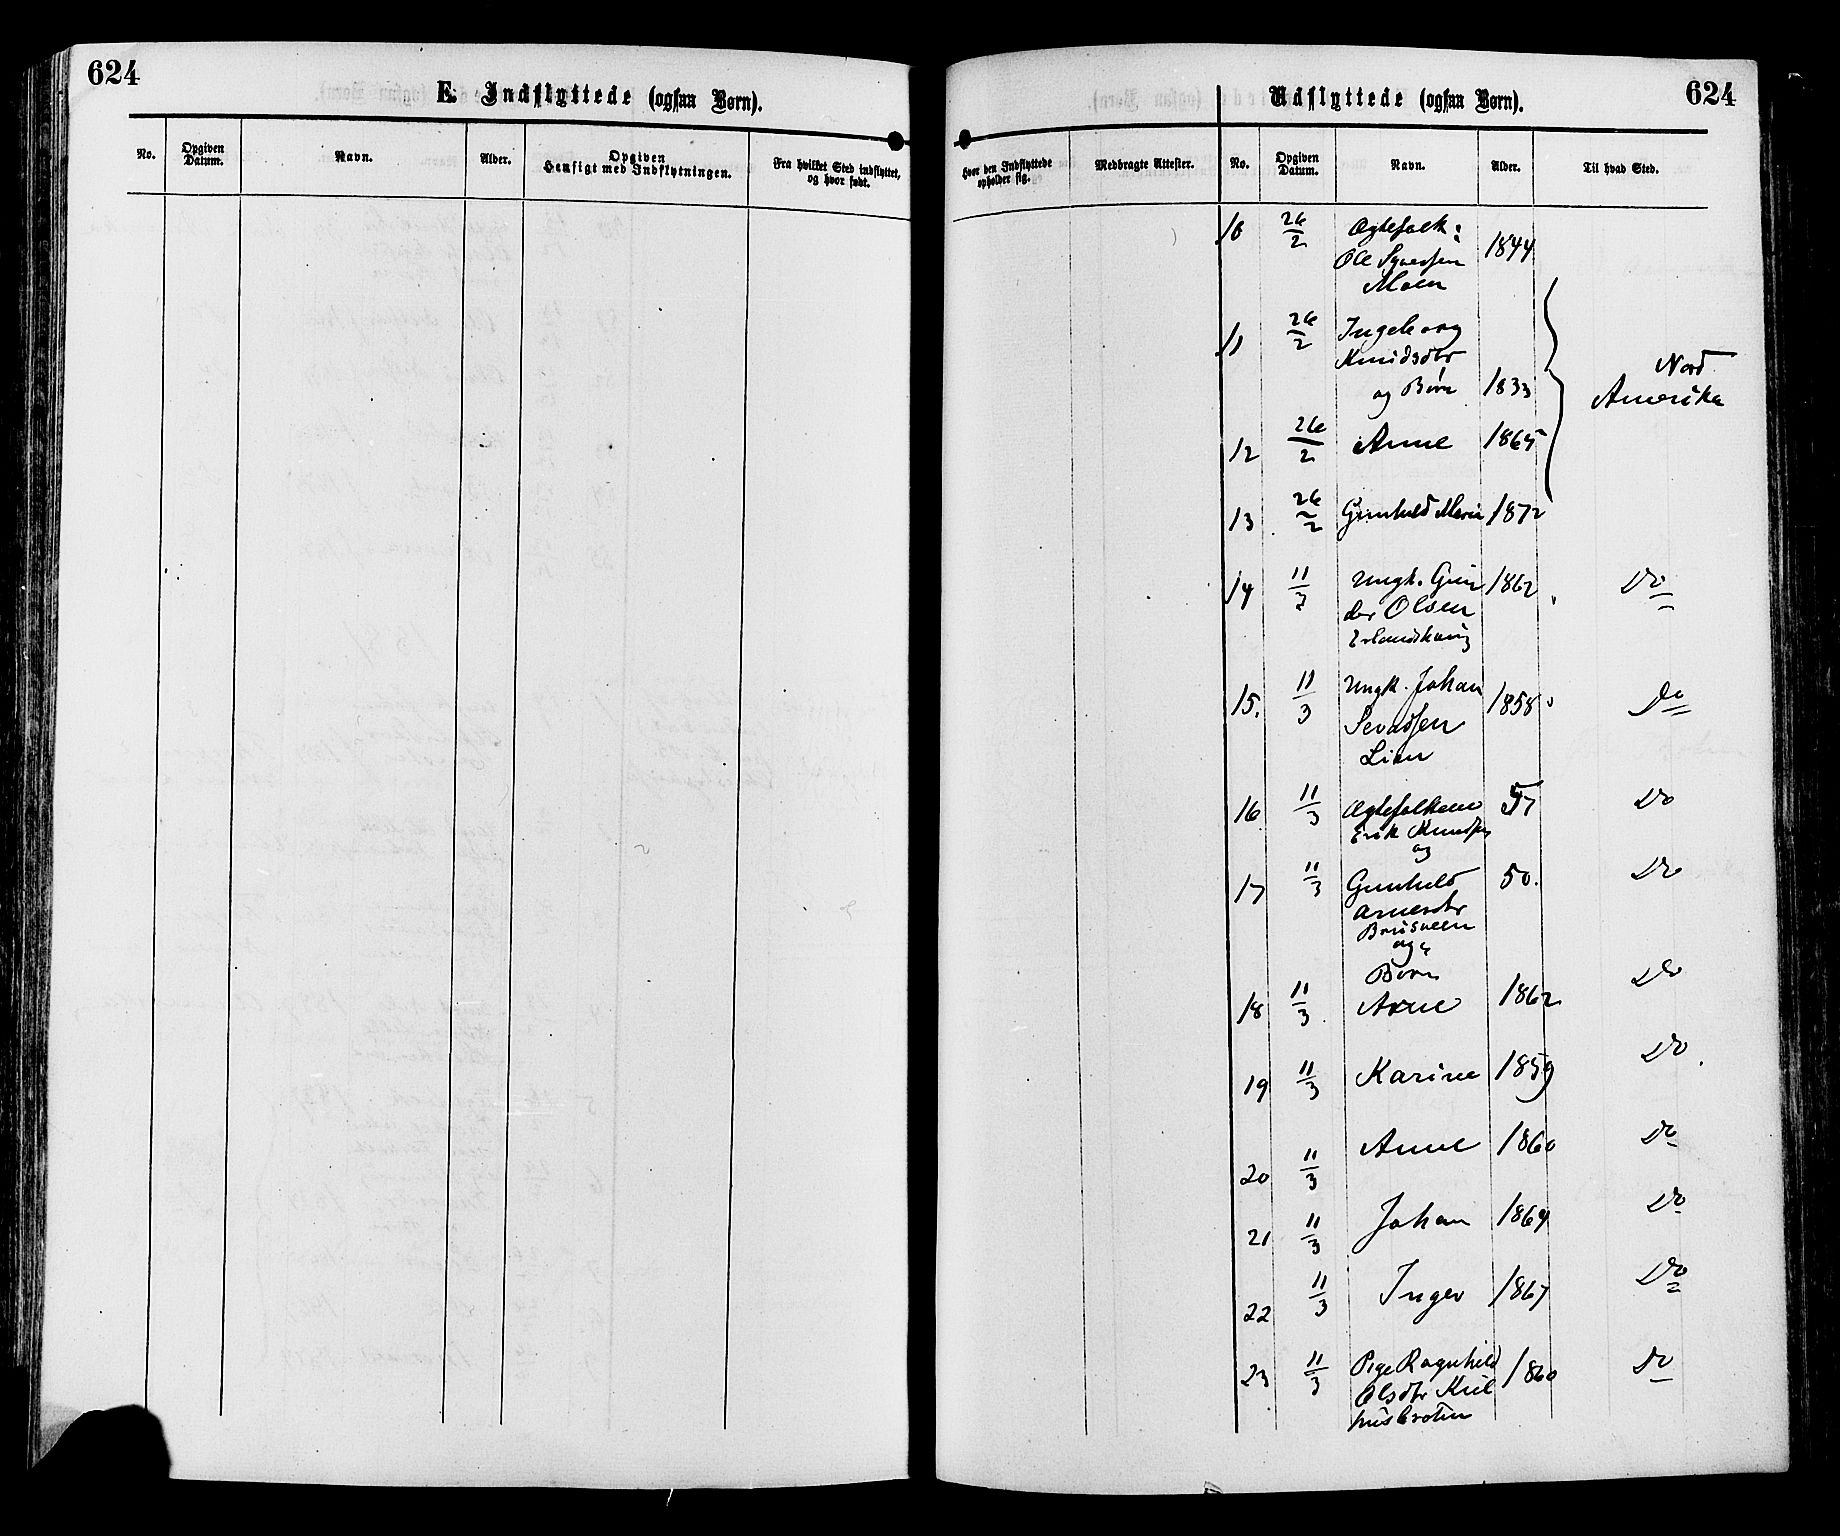 624
E. Indflyttede (ogsaa Børn).
No.
Opgiven Datum.
Navn.
Alder.
Opgiven Hensigt med Indflytningen.
Fra hvilket Sted indflyttet, og hvor født.
624
Udflyttede (ogsaa Børn).
Hvor den Indflyttede opholder sig.
Medbragte Attester.
No.
Opgiven Datum.
Navn.
Alder.
Til hvad Sted.
10 26/2 Ægtefolk: 1844
Ole Syversen
Moen
11 26/2 Ingeborg
Knudsdtr
og Børn 1833
Nord
Amerika
12 26/2 Anne 1865
13 26/2 Gunhild Marie 1872
14 11/3 Ungk. Gun 1862 Do
der Olsen
15. 11/3 Ungk. Johan 1858 Do
Lien
16 11/3 Ægtefolkene 57 Do
Erik Knudsen
og
17 11/3 Gunhild 50. Do
Arnesdtr
Brusveen
og
Børn
18 11/3 Arne 1862 Do
19 11/3 Karine 1859 Do
20 11/3 Anne 1860 Do
21 11/3 Johan 1864 Do
22 11/3 Inger 1867 Do
23 11/3 Pige Ragnhild 1860 Do
Olsdtr